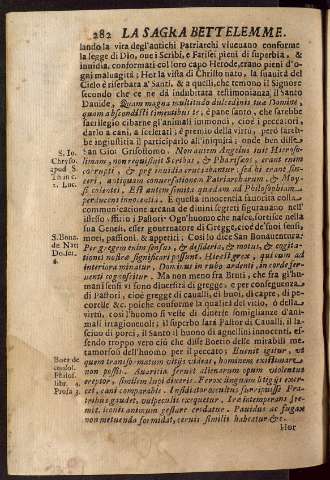 282 LA SAGRA BETTELEMME.
lando la vita degl'antichi Patriarchi viueuano conforme
la legge di Dio, oue i Scribi, e Farisei pieni di superbia, &
inuidia, conformati col loro capo Herode, erano pieni d'o-
gni maluagità; Hor la vista di Christo nato, la suauità del
Cielo è riserbata à' Santi, & a quelli, che temono il Signore
secondo che ce ne dà indubitata testimonianza il Santo
Dauide, Quam magna multitudo dulcedinis tuæ Domine,
quam abscondisti timentibus te; è pane santo, che sarebbe
sacrilegio cibarne gl'animali immondi, cioè i peccatori,
darlo a cani, a scelerati; è premio della virtù, però sareb-
be ingiustitia il participarlo all'iniquità; onde ben disse
San Gio: Grisostomo.
S. Io.
Chryso.
apud S.
Luc.
non requisiuit Scribas, & Phariseos, erant enim
corrupti, &
antiquam conuersationem Patriarcharum, & Moy-
si colentes; Est autem semita quædam ad Philosophiam
perducens innocentia. E questa innocentia fauorita colla
communicatione arcana de diuini segreti figurauano nell'
istesso stato i Pastori: Ogn'huomo che nasce, sortisce nella
sua Genesi, esser gouernatore di Gregge, cioè de' suoi sensi,
moti, passioni, & appetiti. Così lo dice San Bonauentura:
S. Bona.
de Nat.
Per gregem enim sensus, & desideria, & motus, & cogita-
tiones nostræ significari possunt. Hic est grex, qui cum ad
interiora minatur, Dominus in rubo ardenti, in corde fer-
uenti cognoscitur. Ma non meno fra Breti, che fra gl'hu-
mani sensi vi sono diuersità di gregge, e per conseguenza
di Pastori, cioè gregge di caualli, di buoi, di capre, di pe-
corelle &c. poiche conforme la qualità del vitio, ò della
virtù, così l'huomo si veste di diuerse somiglianze d'ani-
mali irragioneuoli; il superbo sarà Pastor di Caualli, il la-
sciuo di porci, il Santo il buono di agnellini innocenti, es-
sendo troppo vero ciò che disse Boetio delle mirabili me-
tamorfosi dell'huomo per il peccato: Euenit igitur, vt
quem transformatum vitijs videas, hominem existimare
non possis. Auaritia feruit alienarum opum violentus
ereptor, similem lupi dixeris. Ferox
Boet de
consol.
Philos.
libr. 4.
Prosa 3.
cani comparabis. Insidiator occultus surripuisse frau-
dibus gaudet, vulpeculis exæquetur. Iræ intemperans fre-
mit, leonis animum gestare credatur. Pauidus ac fugax
non metuenda formidat, ceruis similis habeatur &c.
Hor